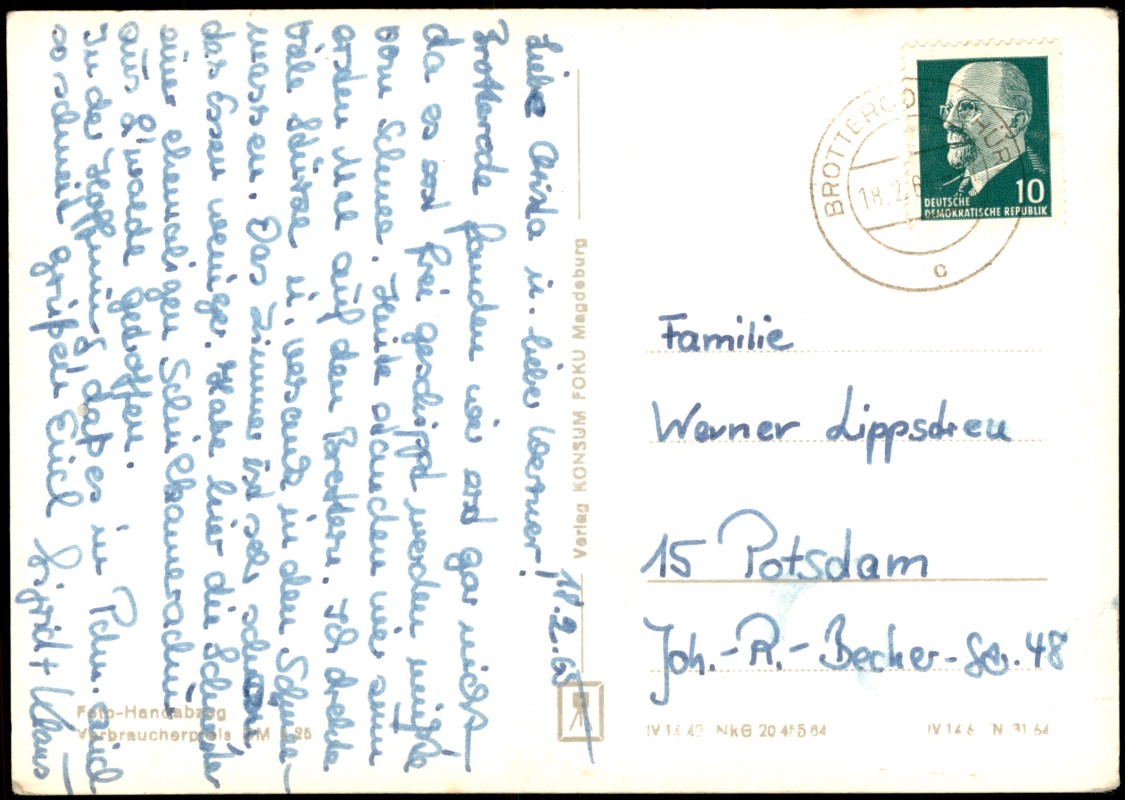 18.2.65
Liebe Christa u. lieber Werner!
Brotterode fanden wir erst gar nicht
da es erst frei geschippt werden mußte
vom Schnee. Heute standen wir zum
ersten Mal auf den Brettern. Es
viele Stürze u. versank in den Schnee-
massen. Das Zimmer ist sehr schön
das Essen weniger. Habe hier die Schwester
einer ehemaligen Schulkameradin
aus getroffen.
In der Hoffnung daß es in Pdm. auch
so schneit grüßen Euch Sigrid + Klaus
Foto-Handabzug
Verbraucherpreis DM 0.25
Verlag KONSUM FOKU Magdeburg
BROTTERODE THÜR
18.2.6
c
10
DEUTSCHE
DEMOKRATISCHE REPUBLIK
Familie
Werner Lippscheu
15 Potsdam
Joh.-R.-Becher-Str. 48
IV 14 NkG 20 64
IV 14 6 N 31 64